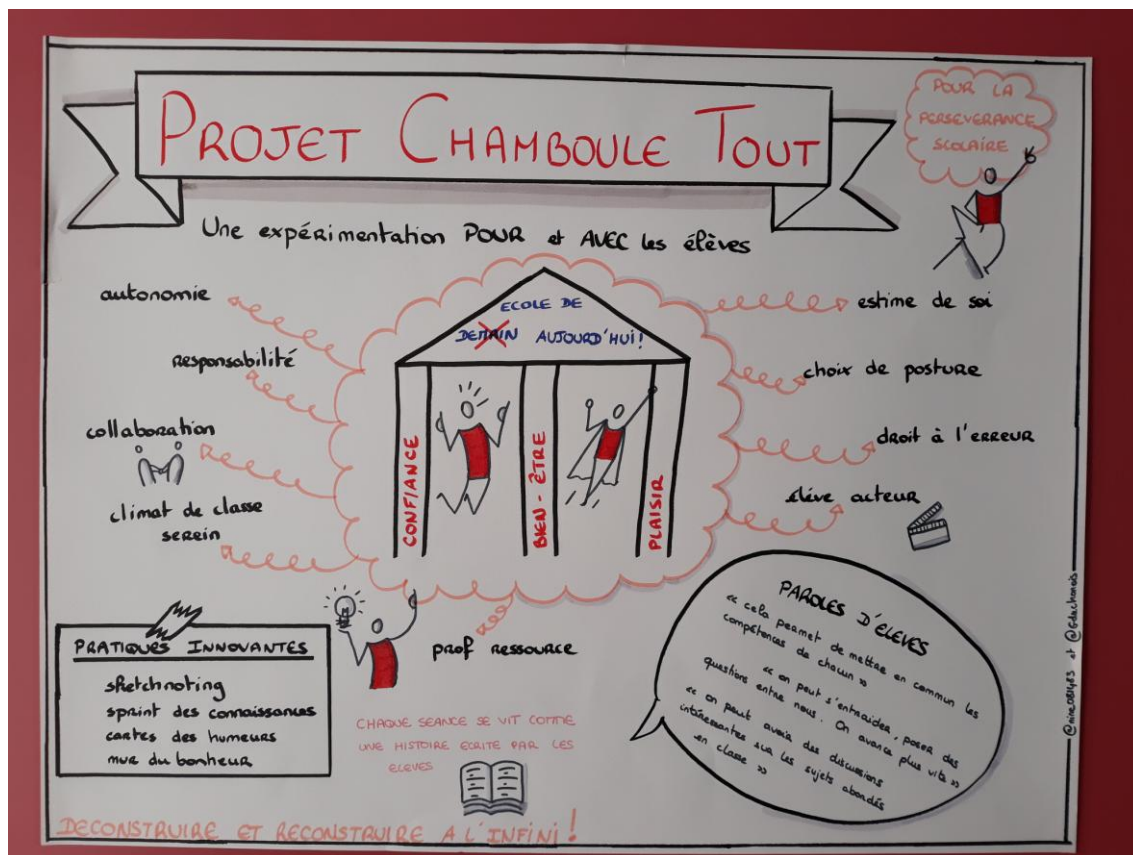 PROJET CHAMBOULE TOUT
POUR LA
PERSEVERANCE
SCOLAIRE
Une expérimentation POUR et AVEC les élèves
autonomie
responsabilité
collaboration
climat de classe
serein
ECOLE DE
DEMAIN AUJOURD'HUI!
CONFIANCE
BIEN-ÊTRE
PLAISIR
estime de soi
choix de posture
droit à l'erreur
élève acteur
prof ressource
PRATIQUES INNOVANTES
sketchnoting
sprint des connaissances
cartes des humeurs
mur du bonheur
CHAQUE SEANCE SE VIT COMME
UNE HISTOIRE ECRITE PAR LES
ELEVES
PAROLES D'ELEVES
« cela permet de mettre en commun les
compétences de chacun »
« on peut s'entraider, poser des
questions entre nous. On avance plus vite »
« on peut avoir des discussions
intéressantes sur les sujets abordés
en classe »
DECONSTRUIRE ET RECONSTRUIRE A L'INFINI!